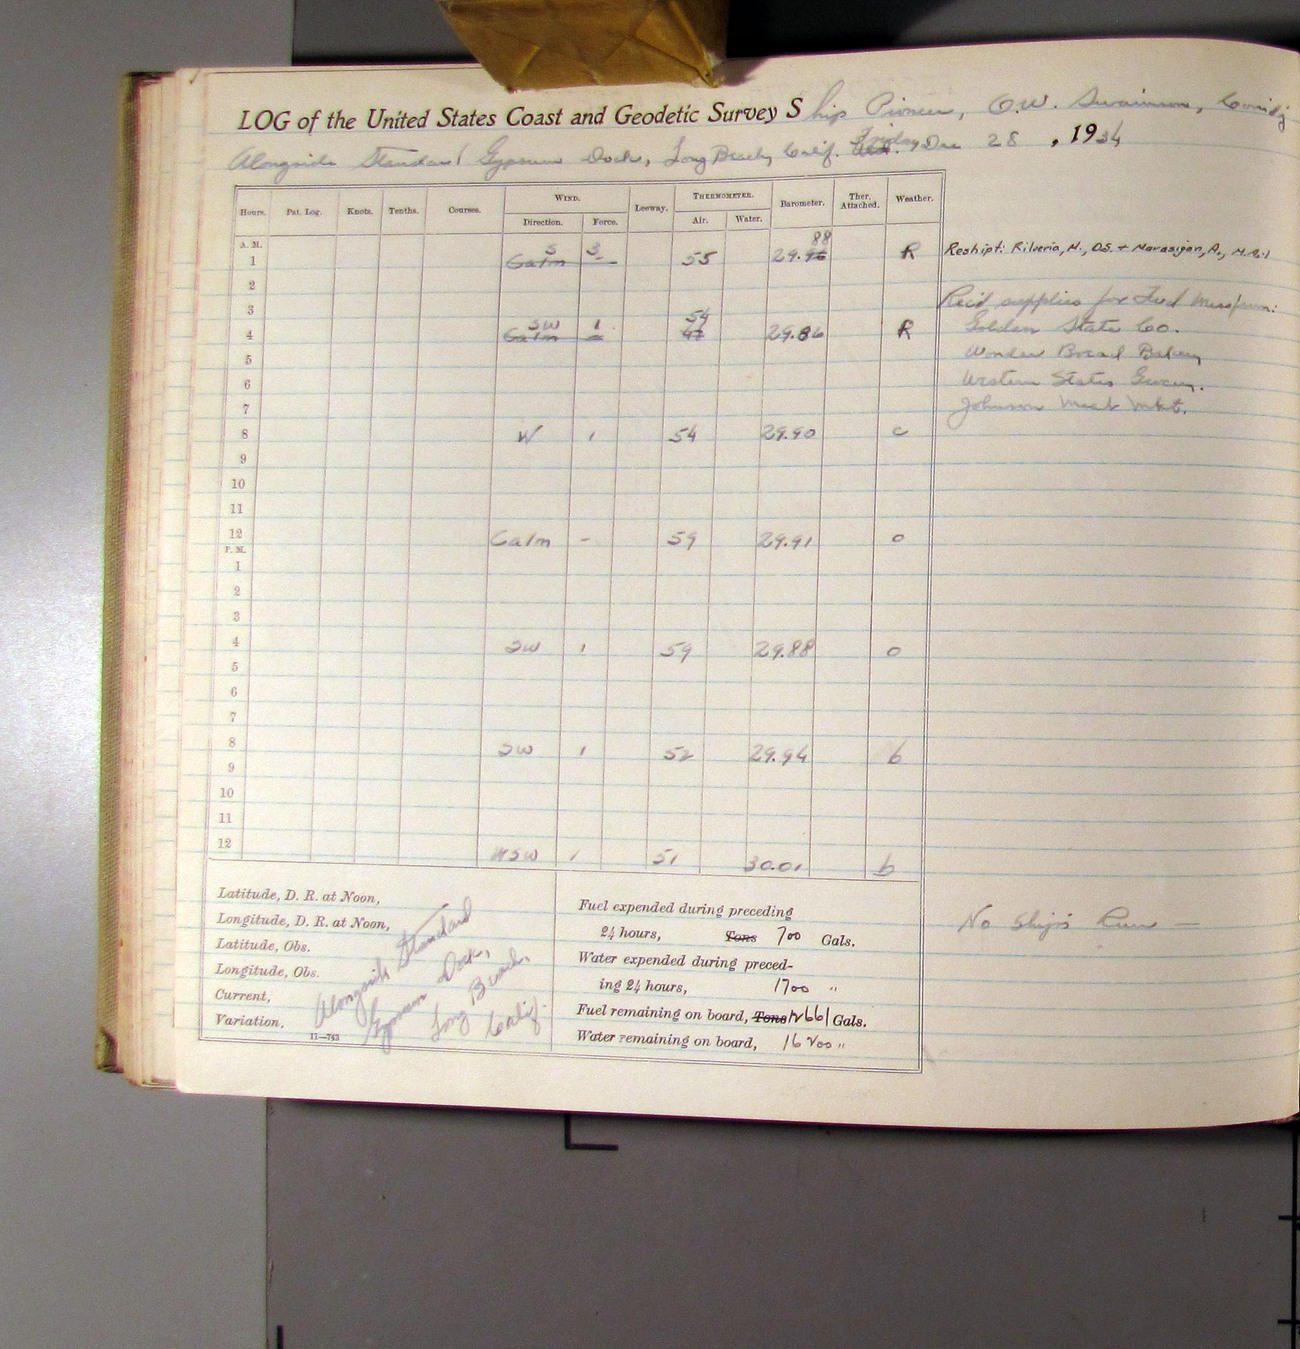 LOG of the United States Coast and Geodetic Survey Ship Pioneer, O.W. Swainson, Comdg
Alongside Standard Gypsum Dock, Long Beach, Calif. Friday, Dec 28, 1934
Hours. Pat. Log. Knots. Tenths. Courses. WIND. Direction. Force. Leeway. THERMOMETER. Air. Water. Barometer. Ther. Attached. Weather.
A. M.
1 Calm S - 3 55 29.96 88 R Reshipt: Rilveria, M., OS. + Marasigan, A., M.A.1
2
3 Rec'd supplies for Wardroom Mess from:
4 Calm SW - 1 47 54 29.86 R Golden State Co.
5 Wonder Bread Bakery
6 Western States Grocery.
7 Johnson Meat Mkt.
8 W 1 54 29.90 c
9
10
11
12 Calm - 59 29.91 o
P. M.
1
2
3
4 SW 1 59 29.88 o
5
6
7
8 SW 1 52 29.94 b
9
10
11
12 WSW 1 51 30.01 b
Latitude, D. R. at Noon,
Longitude, D. R. at Noon,
Latitude, Obs.
Longitude, Obs.
Current,
Variation,
11—743
Alongside Standard
Gypsum Dock,
Long Beach,
Calif.
Fuel expended during preceding
24 hours, Tons 700 Gals.
Water expended during preced-
ing 24 hours, 1700 "
Fuel remaining on board, Tons Gals.
Water remaining on board, 16200 "
No Ship's Run